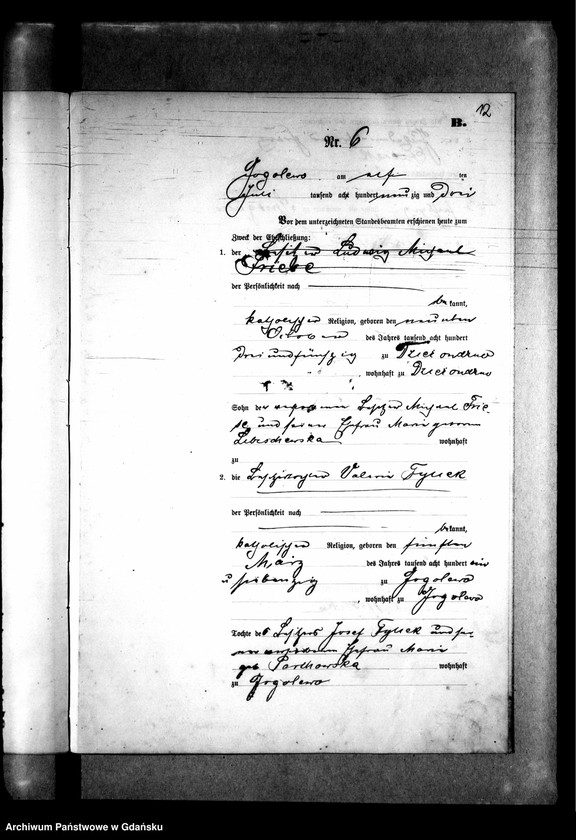 12
B.
Nr. 6
Gogolewo am elf ten
Juli tausend acht hundert neun zig und drei
Vor dem unterzeichneten Standesbeamten erschienen heute zum
Zweck der Eheschließung:
1. der Besitzer Ludwig Michael
Friebe
der Persönlichkeit nach
be kannt,
katholischer Religion, geboren den neunten
October des Jahres tausend acht hundert
drei und fünfzig zu
wohnhaft zu
Sohn des Besitzer Michael Frie-
be und seiner Ehefrau Marie geborene
wohnhaft
zu
2. die Besitzertochter Valerie Tyllek
der Persönlichkeit nach
be kannt,
katholischer Religion, geboren den fünften
März des Jahres tausend acht hundert ein
u siebenzig zu Gogolewo
, wohnhaft zu Gogolewo
Tochter des Besitzers Josef Tyllek und sei-
ner verstorbenen Ehefrau Marie
geb wohnhaft
zu Gogolewo
Archiwum Państwowe w Gdańsku